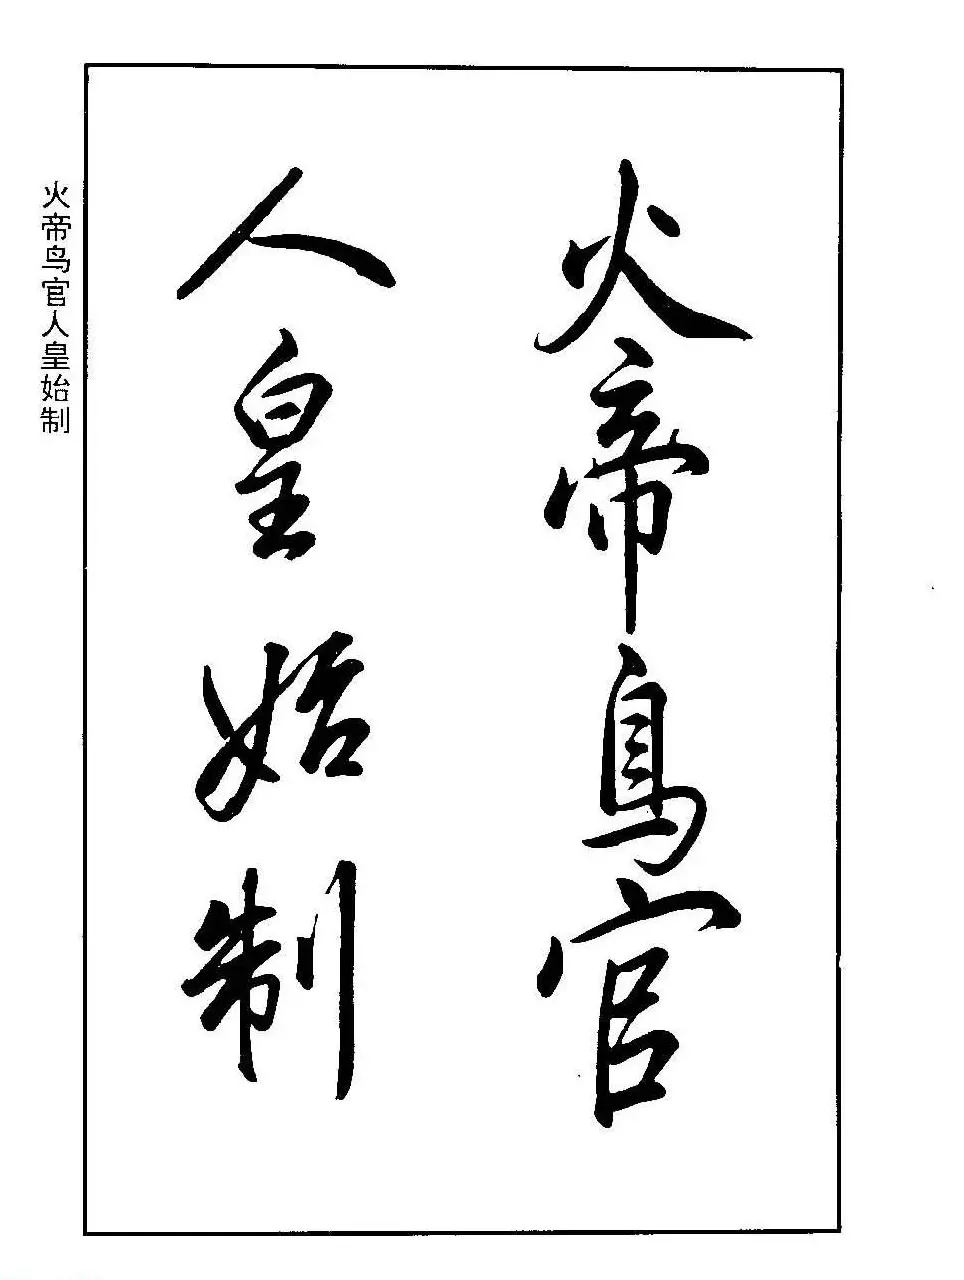 火帝鳥官
人皇始制
火帝鸟官人皇始制